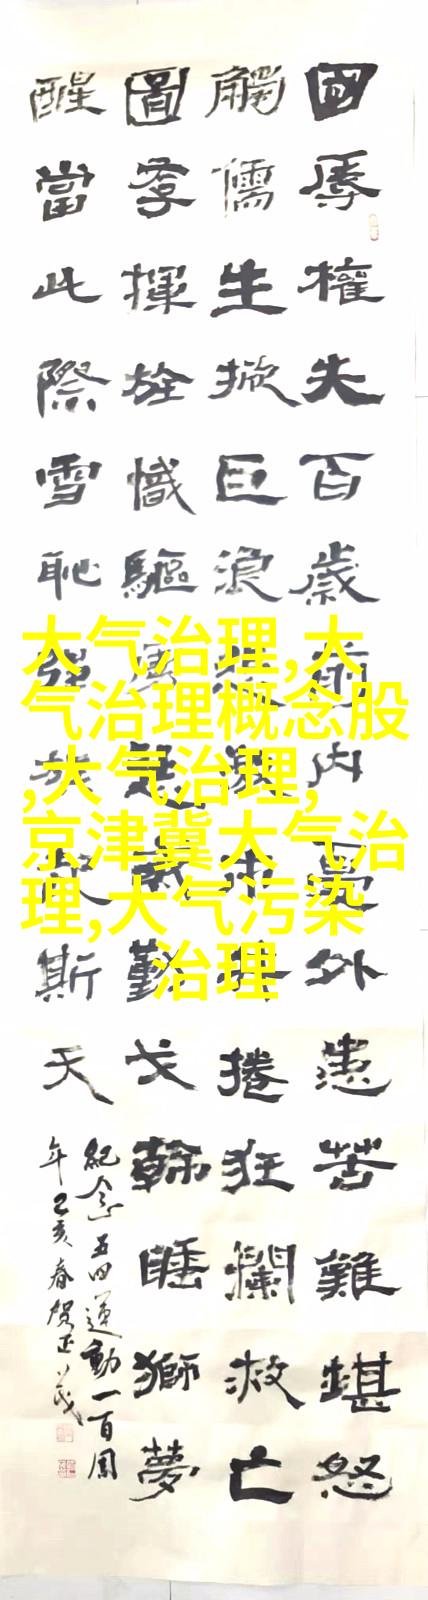 國辱權失百歲前内憂外患苦難堪怒
觸儒生掀巨浪激捲狂瀾救亡
圖存揮旌幟驅戈斡睡獅夢
醒當此際雪恥強族斯天
紀念五四運動一百周
年己亥春賀正茂
大气治理,大
气治理概念股
,大气治理,
京津冀大气治
理,大气污染
治理